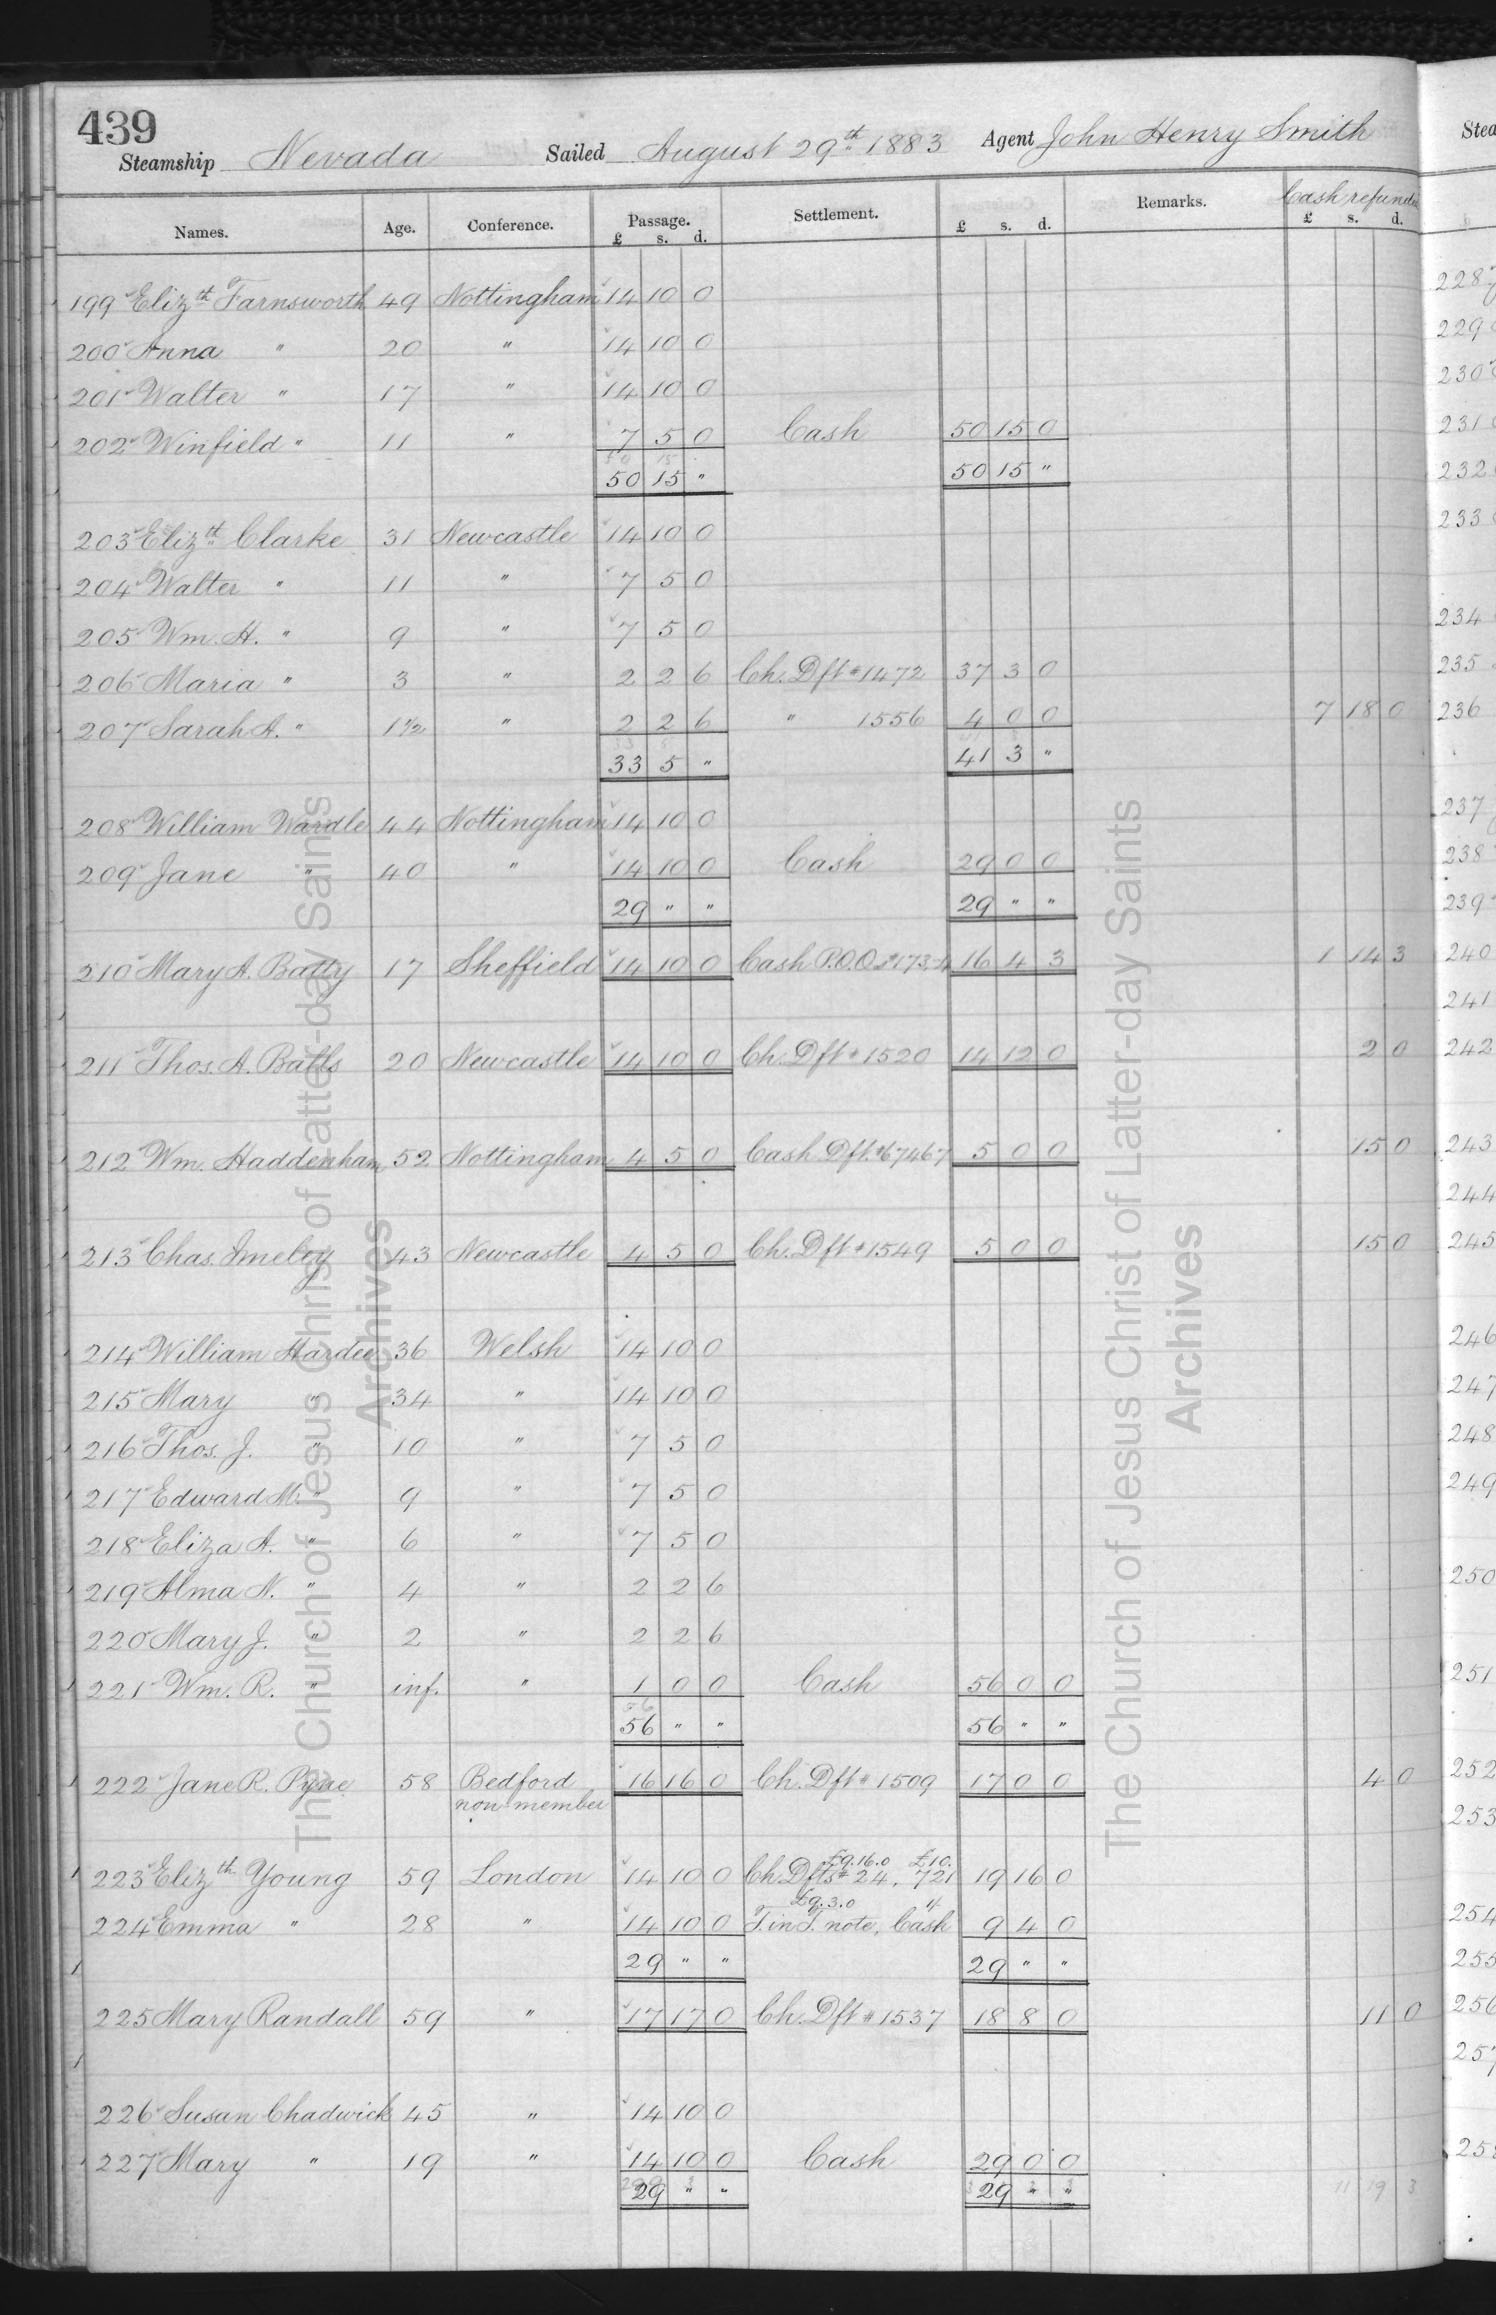 439
Steamship Nevada Sailed August 29th 1883 Agent John Henry Smith Stea
Names. Age. Conference. Passage. £ s. d. Settlement. £ s. d. Remarks. Cash refunded £ s. d.
199 Elizth Farnsworth 49 Nottingham 14 10 0
200 Anna " 20 " 14 10 0
201 Walter " 17 " 14 10 0
202 Winfield " 11 " 7 5 0 Cash 50 15 0
50 15 " 50 15 "
203 Elizth Clarke 31 Newcastle 14 10 0
204 Walter " 11 " 7 5 0
205 Wm. H. " 9 " 7 5 0
206 Maria " 3 " 2 2 6 Ch. Dft # 1472 37 3 0
207 Sarah A. " 1 1/2 " 2 2 6 " 1556 4 0 0 7 18 0
33 5 " 41 3 "
208 William Wardle 44 Nottingham 14 10 0
209 Jane " 40 " 14 10 0 Cash 29 0 0
29 " " 29 " "
210 Mary A. Batty 17 Sheffield 14 10 0 Cash P.O.O. 16 4 3 1 14 3
211 Thos. A. Batls 20 Newcastle 14 10 0 Ch. Dft # 1520 14 12 0 2 0
212 Wm. Haddenham 52 Nottingham 4 5 0 Cash Dft. #67467 5 0 0 15 0
213 Chas. 43 Newcastle 4 5 0 Ch. Dft # 1549 5 0 0 15 0
214 William Hardee 36 Welsh 14 10 0
215 Mary " 34 " 14 10 0
216 Thos. J. " 10 " 7 5 0
217 Edward M. " 9 " 7 5 0
218 Eliza A. " 6 " 7 5 0
219 Alma N. " 4 " 2 2 6
220 Mary J. " 2 " 2 2 6
221 Wm. R. " inf. " 1 0 0 Cash 56 0 0
56 " " 56 " "
222 Jane R. Pyne 58 Bedford 16 16 0 Ch. Dft # 1509 17 0 0 4 0
non member
£9.16.0 £10.
223 Elizth Young 59 London 14 10 0 Ch. Dfts # 24, 721 19 16 0
£9.3.0
224 Emma " 28 " 14 10 0 T. in T. note, Cash 9 4 0
29 " " 29 " "
225 Mary Randall 59 " 17 17 0 Ch. Dft # 1537 18 8 0 11 0
226 Susan Chadwick 45 " 14 10 0
227 Mary " 19 " 14 10 0 Cash 29 0 0
29 " " 29 " " 11 19 3
228
229
230
231
232
233
234
235
236
237
238
239
240
241
242
243
244
245
246
247
248
249
250
251
252
253
254
255
256
257
258
The Church of Jesus Christ of Latter-day Saints
Archives
The Church of Jesus Christ of Latter-day Saints
Archives